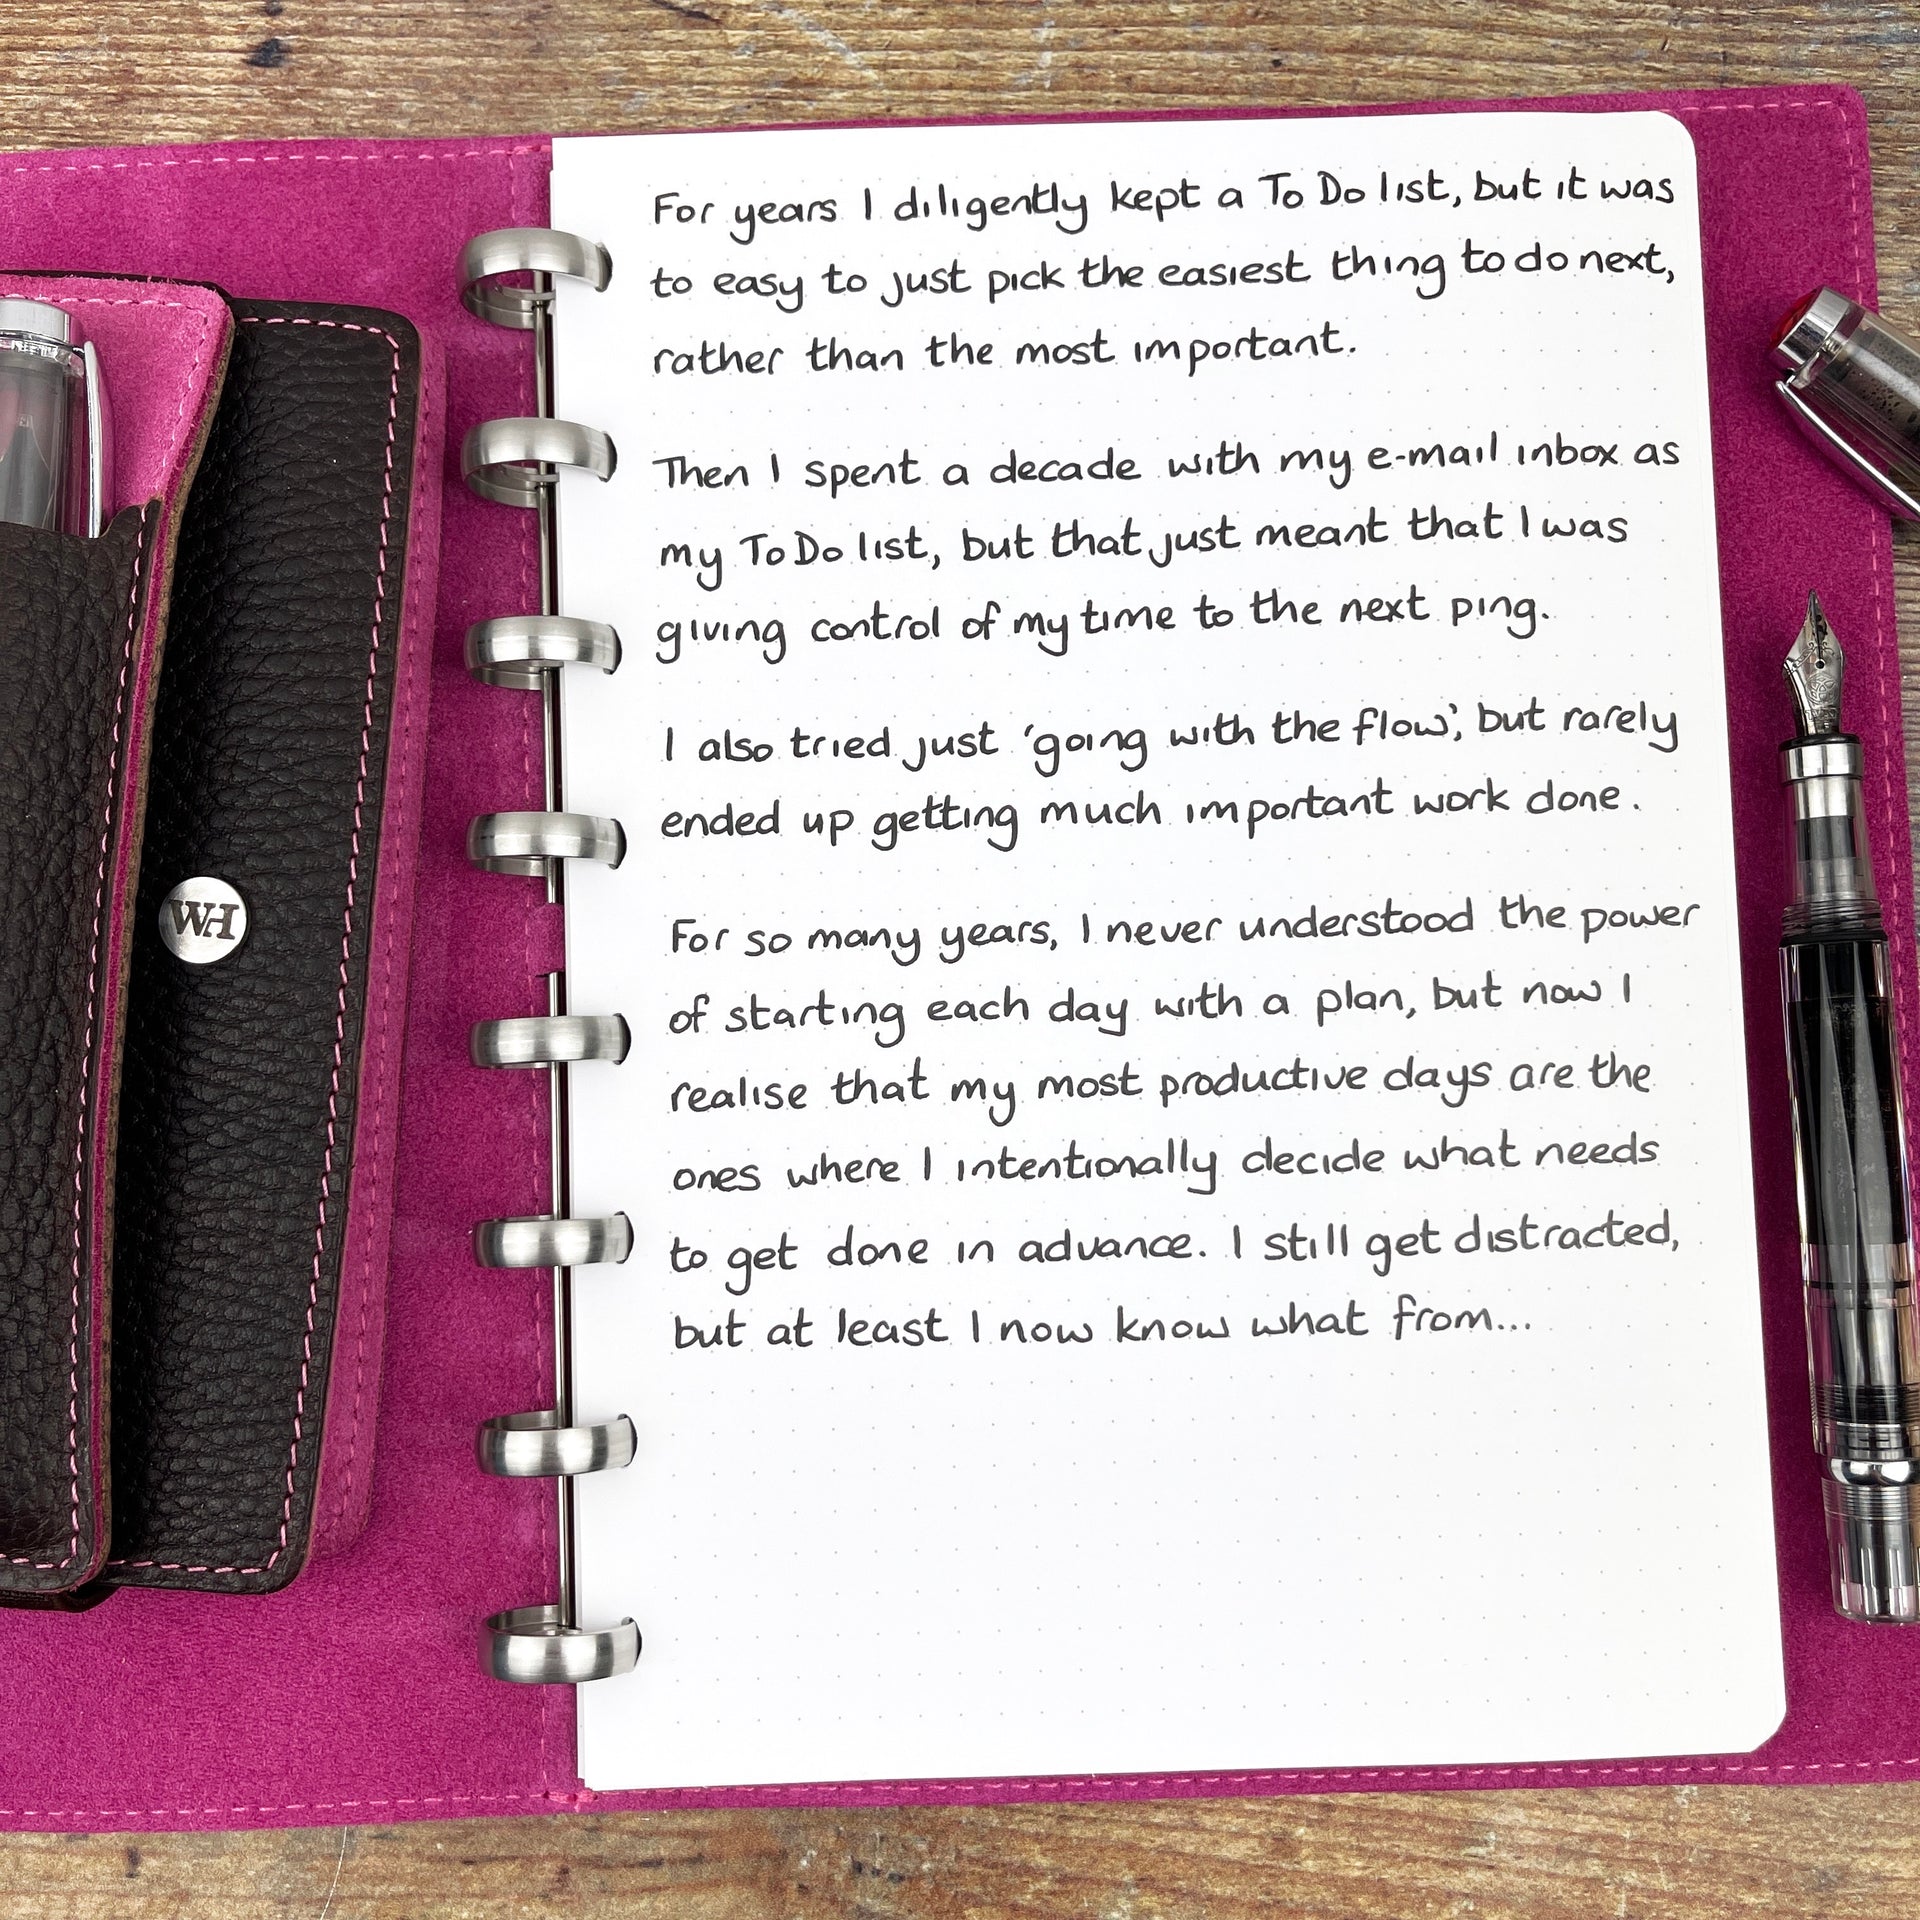 For years I diligently kept a To Do list, but it was
to easy to just pick the easiest thing to do next,
rather than the most important.
Then I spent a decade with my e-mail inbox as
my To Do list, but that just meant that I was
giving control of my time to the next ping.
I also tried just 'going with the flow', but rarely
ended up getting much important work done.
For so many years, I never understood the power
of starting each day with a plan, but now I
realise that my most productive days are the
ones where I intentionally decide what needs
to get done in advance. I still get distracted,
but at least I now know what from...
WH